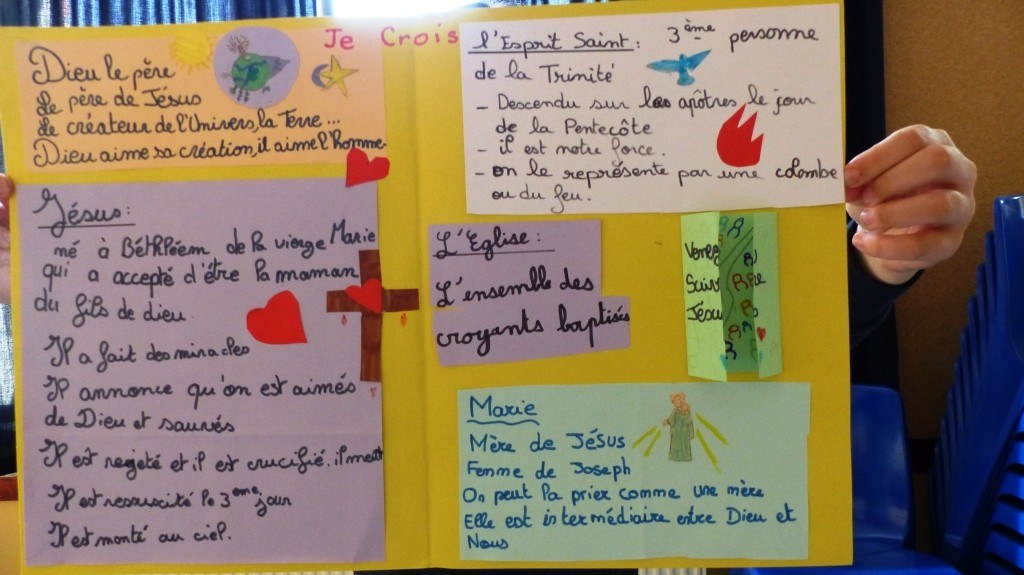 Je Crois
Dieu le père
Le père de Jésus
Le créateur de l'Univers, la Terre...
Dieu aime sa création, il aime l'homme
Jésus:
né à Béthléem de la vierge Marie
qui a accepté d'être la maman
du fils de dieu.
Il a fait des miracles
Il annonce qu'on est aimés
de Dieu et sauvés
Il est rejeté et il est crucifié. il meurt
Il est ressuscité le 3ème jour
Il est monté au ciel.
l'Esprit Saint: 3ème personne
de la Trinité
- Descendu sur les apôtres le jour
de la Pentecôte
- il est notre force.
- on le représente par une colombe
ou du feu.
L'Eglise:
L'ensemble des
croyants baptisés
Venez
Suivre
Jésus
Marie
Mère de JÉSUS
Femme de Joseph
On peut la prier comme une mère
Elle est intermédiaire entre Dieu et
Nous